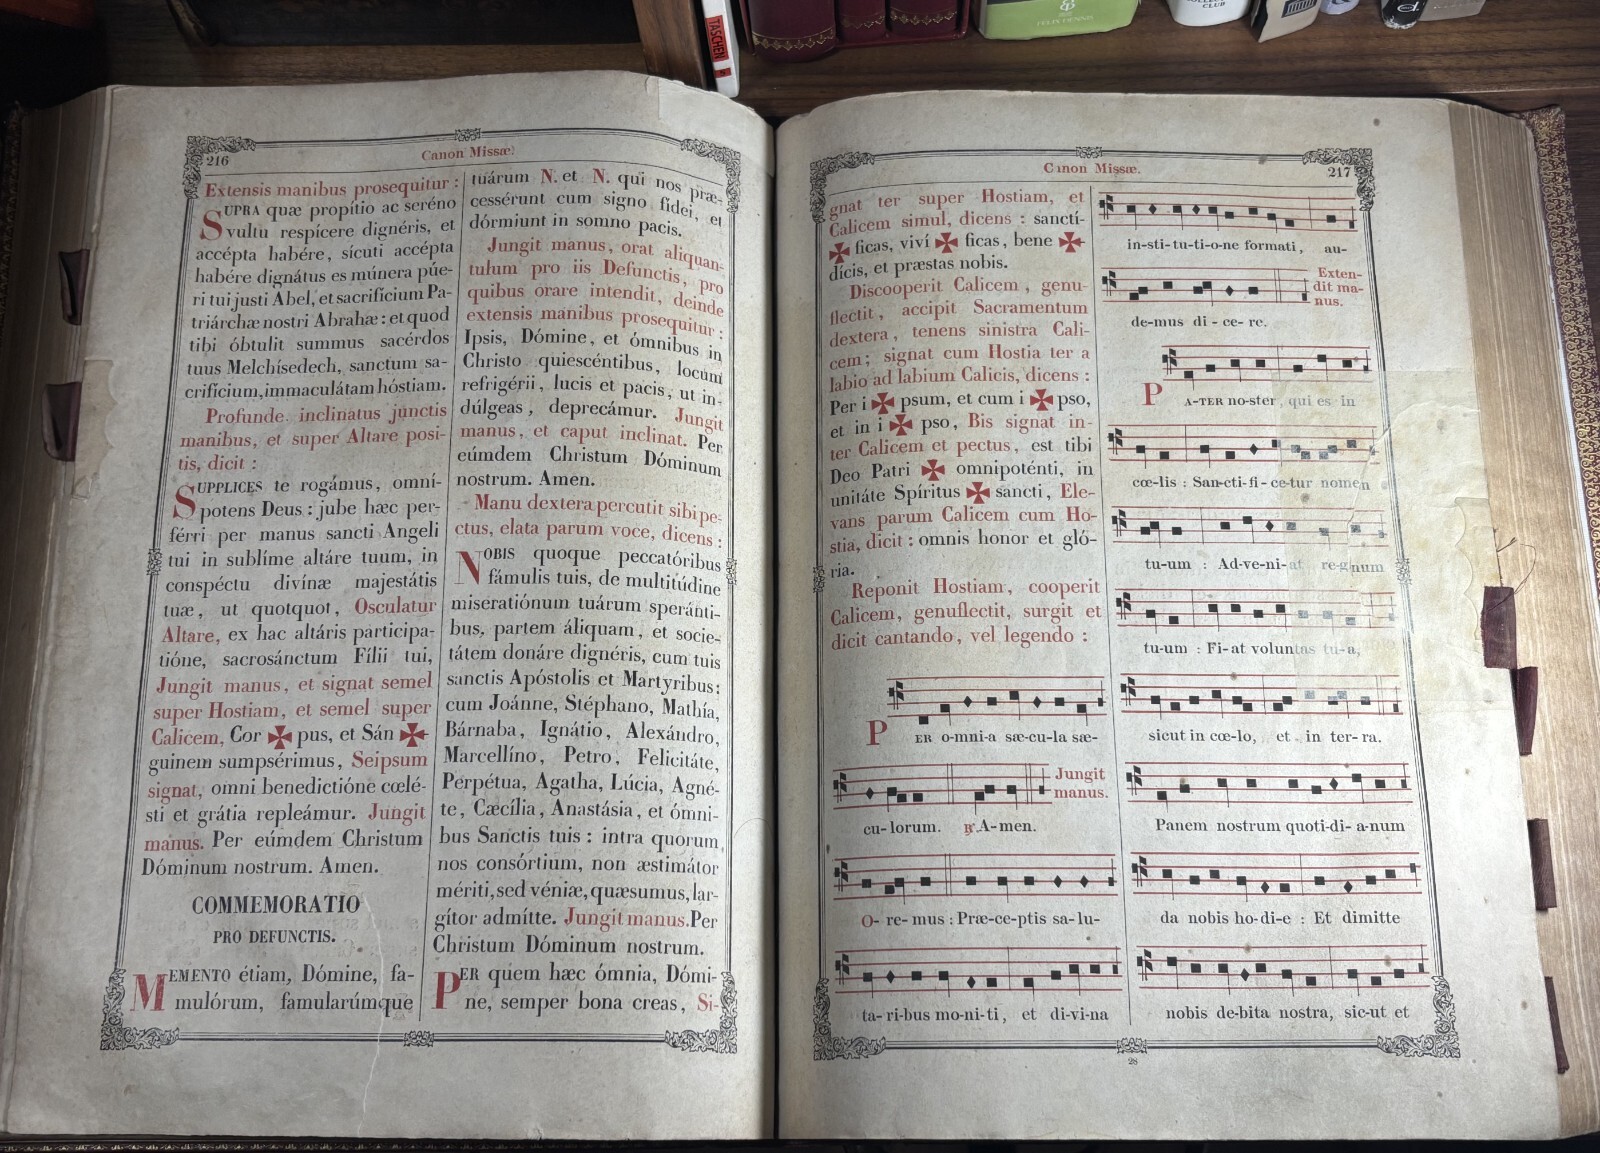 TASCHEN
COLLECT
CLUB
216
Canon Missæ.
Extensis manibus prosequitur :
SUPRA quæ propítio ac seréno
vultu respícere dignéris, et
accépta habére, sícuti accépta
habére dignátus es múnera púe-
ri tui justi Abel, et sacrifícium Pa-
triárchæ nostri Abrahæ : et quod
tibi óbtulit summus sacérdos
tuus Melchísedech, sanctum sa-
crifícium, immaculátam hóstiam.
Profunde inclinatus junctis
manibus, et super Altare posi-
tis, dicit :
SUPPLICES te rogámus, omní-
potens Deus : jube hæc per-
férri per manus sancti Angeli
tui in sublíme altáre tuum, in
conspéctu divínæ majestátis
tuæ, ut quotquot, Osculatur
Altare, ex hac altáris participa-
tióne, sacrosánctum Fílii tui,
Jungit manus, et signat semel
super Hostiam, et semel super
Calicem, Cor ✠ pus, et Sán ✠
guinem sumpsérimus, Seipsum
signat, omni benedictióne cœlé-
sti et grátia repleámur. Jungit
manus. Per eúmdem Christum
Dóminum nostrum. Amen.
COMMEMORATIO
PRO DEFUNCTIS.
MEMENTO étiam, Dómine, fa-
mulórum, famularúmque
tuárum N. et N. qui nos præ-
cessérunt cum signo fídei, et
dórmiunt in somno pacis.
Jungit manus, orat aliquan-
tulum pro iis Defunctis, pro
quibus orare intendit, deinde
extensis manibus prosequitur :
Ipsis, Dómine, et ómnibus in
Christo quiescéntibus, locum
refrigérii, lucis et pacis, ut in-
dúlgeas, deprecámur. Jungit
manus, et caput inclinat. Per
eúmdem Christum Dóminum
nostrum. Amen.
Manu dextera percutit sibi pe-
ctus, elata parum voce, dicens :
NOBIS quoque peccatóribus
fámulis tuis, de multitúdine
miseratiónum tuárum speránti-
bus, partem áliquam, et socie-
tátem donáre dignéris, cum tuis
sanctis Apóstolis et Martyribus:
cum Joánne, Stéphano, Mathía,
Bárnaba, Ignátio, Alexándro,
Marcellíno, Petro, Felicitáte,
Perpétua, Agatha, Lúcia, Agné-
te, Cæcília, Anastásia, et ómni-
bus Sanctis tuis : intra quorum
nos consórtium, non æstimátor
mériti, sed véniæ, quæsumus, lar-
gítor admítte. Jungit manus. Per
Christum Dóminum nostrum.
PER quem hæc ómnia, Dómi-
ne, semper bona creas, Si-
Canon Missæ.
217
gnat ter super Hostiam, et
Calicem simul, dicens : sanctí-
✠ ficas, viví ✠ ficas, bene ✠
dícis, et præstas nobis.
Discooperit Calicem, genu-
flectit, accipit Sacramentum
dextera, tenens sinistra Cali-
cem; signat cum Hostia ter a
labio ad labium Calicis, dicens :
Per i ✠ psum, et cum i ✠ pso,
et in i ✠ pso, Bis signat in-
ter Calicem et pectus, est tibi
Deo Patri ✠ omnipoténti, in
unitáte Spíritus ✠ sancti, Ele-
vans parum Calicem cum Ho-
stia, dicit : omnis honor et gló-
ria.
Reponit Hostiam, cooperit
Calicem, genuflectit, surgit et
dicit cantando, vel legendo :
PER o-mni-a sæ-cu-la sæ-
Jungit
manus.
cu-lorum. ℟ A-men.
O- re-mus : Præ-ce-ptis sa-lu-
ta-ri-bus mo-ni-ti, et di-vi-na
in-sti-tu-ti-o-ne formati, au-
Exten-
dit ma-
nus.
de-mus di-ce-re.
PA-TER no-ster, qui es in
cœ-lis : San-cti-fi-ce-tur nomen
tu-um : Ad-ve-ni-at re-gnum
tu-um : Fi-at voluntas tu-a,
sicut in cœ-lo, et in ter-ra.
Panem nostrum quoti-di-a-num
da nobis ho-di-e : Et dimitte
nobis de-bita nostra, sic-ut et
28